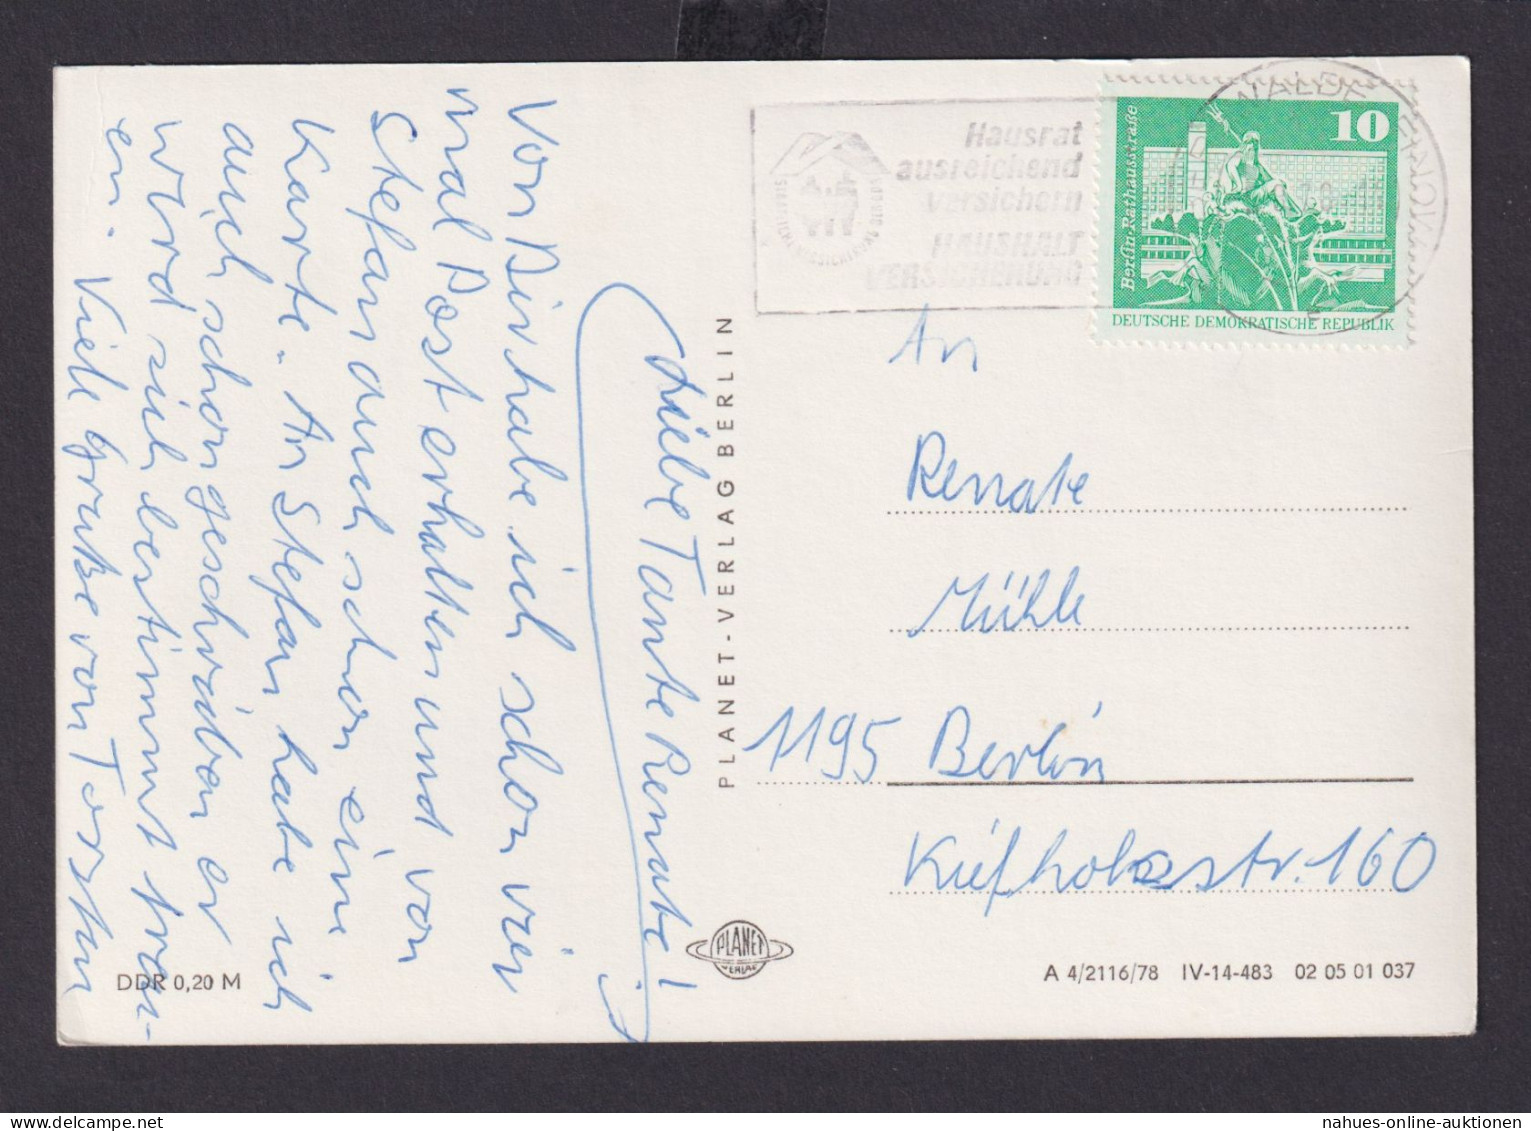 Liebe Tante Renate!
Von Dir habe ich schon vier
mal Post erhalten und von
Stefan auch schon eine
Karte. An Stefan habe ich
auch schon geschrieben er
wird sich bestimmt freu-
en. Viele Grüße von Torsten
PLANET-VERLAG BERLIN
Hausrat
ausreichend
versichern
HAUSHALT
VERSICHERUNG
10
Berlin, Rathausstraße
DEUTSCHE DEMOKRATISCHE REPUBLIK
An
Renate
Mühle
1195 Berlin
Kiefholzstr. 160
PLANET
VERLAG
DDR 0,20 M
A 4/2116/78 IV-14-483 02 05 01 037
nahues-online-auktionen